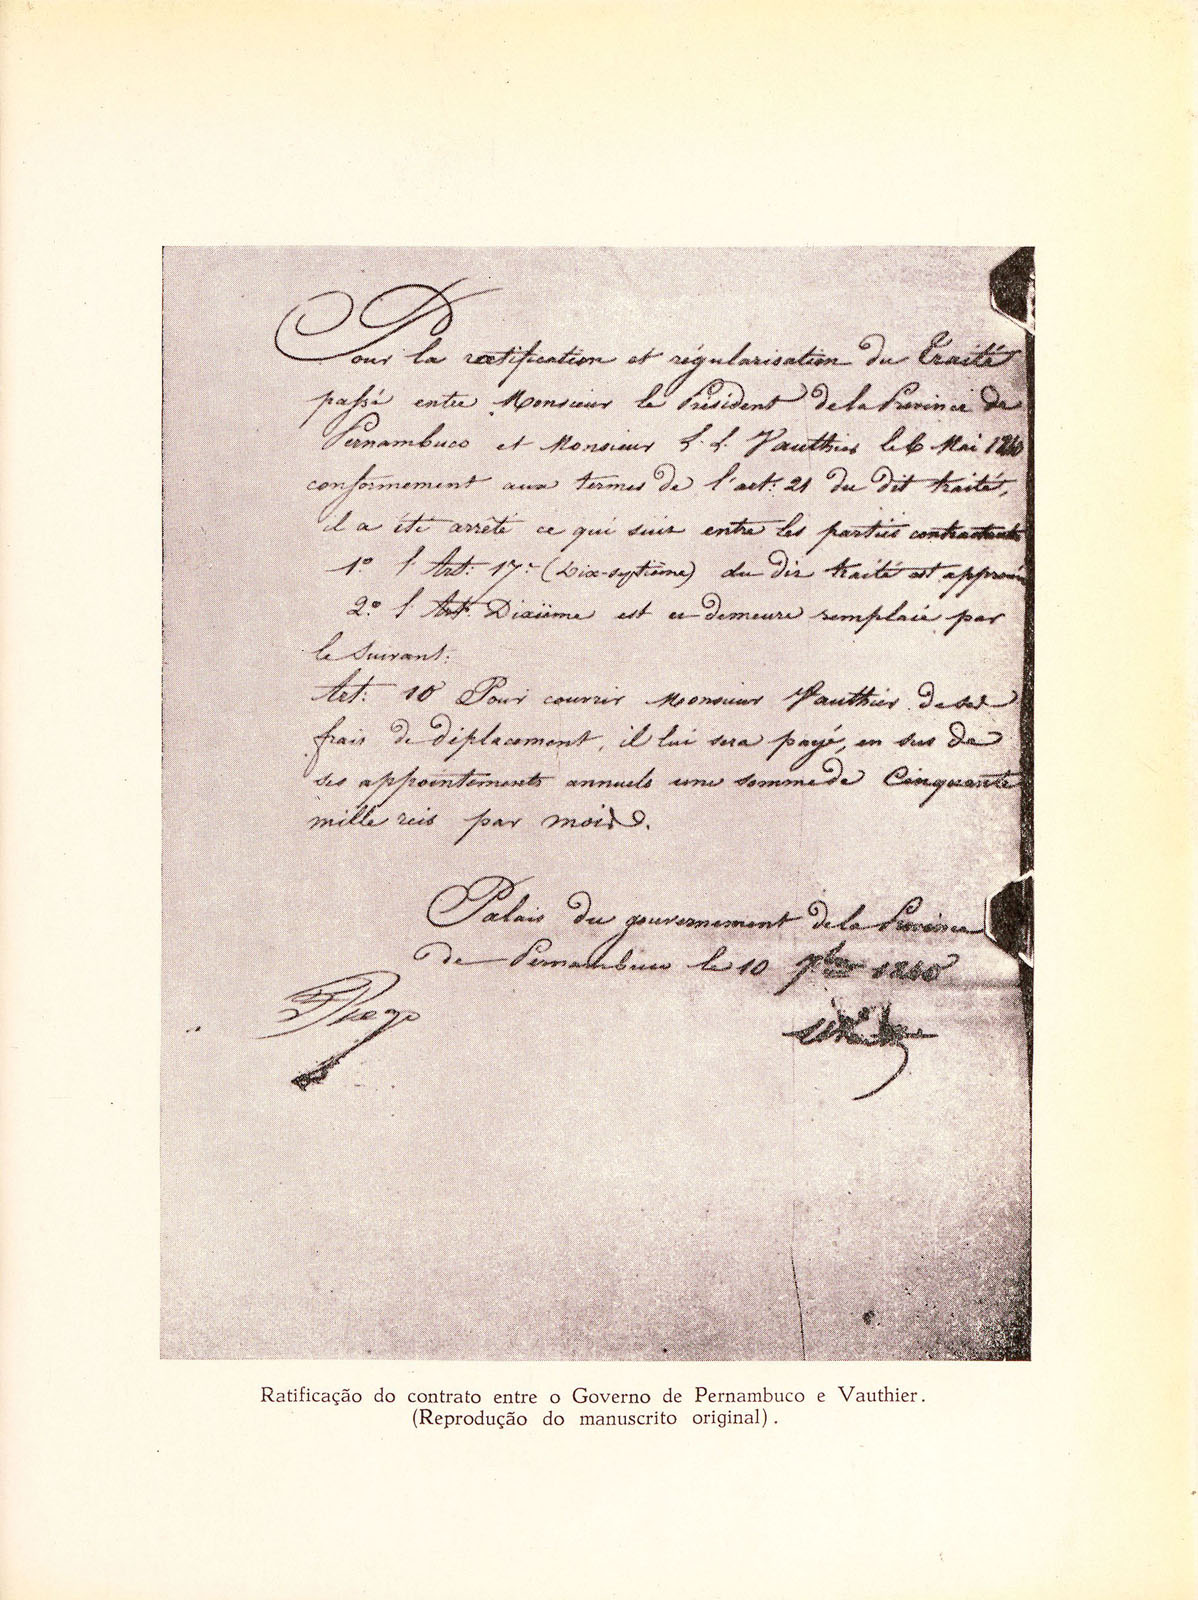 Pour la ratification et régularisation du Traité
passé entre Monsieur le Président de la Province de
Pernambuco et Monsieur L. L. Vauthier le 6 Mai 1840
conformement aux termes de l'art: 21 du dit traité,
il a été arrêté ce qui suit entre les parties contractants
1º l'Art: 17: (Dix-septième) du dit traité est approuvé
2.º l'Art. Dixième est et demeure remplacé par
le Suivant:
Art: 10 Pour couvrir Monsieur Vauthier de ses
frais de déplacement, il lui sera payé, en sus de
ses appointements annuels une somme de Cinquante
mille reis par mois.
Palais du gouvernement de la Province
de Pernambuco le 10 7bre 1840
Rego
Ratificação do contrato entre o Governo de Pernambuco e Vauthier.
(Reprodução do manuscrito original).